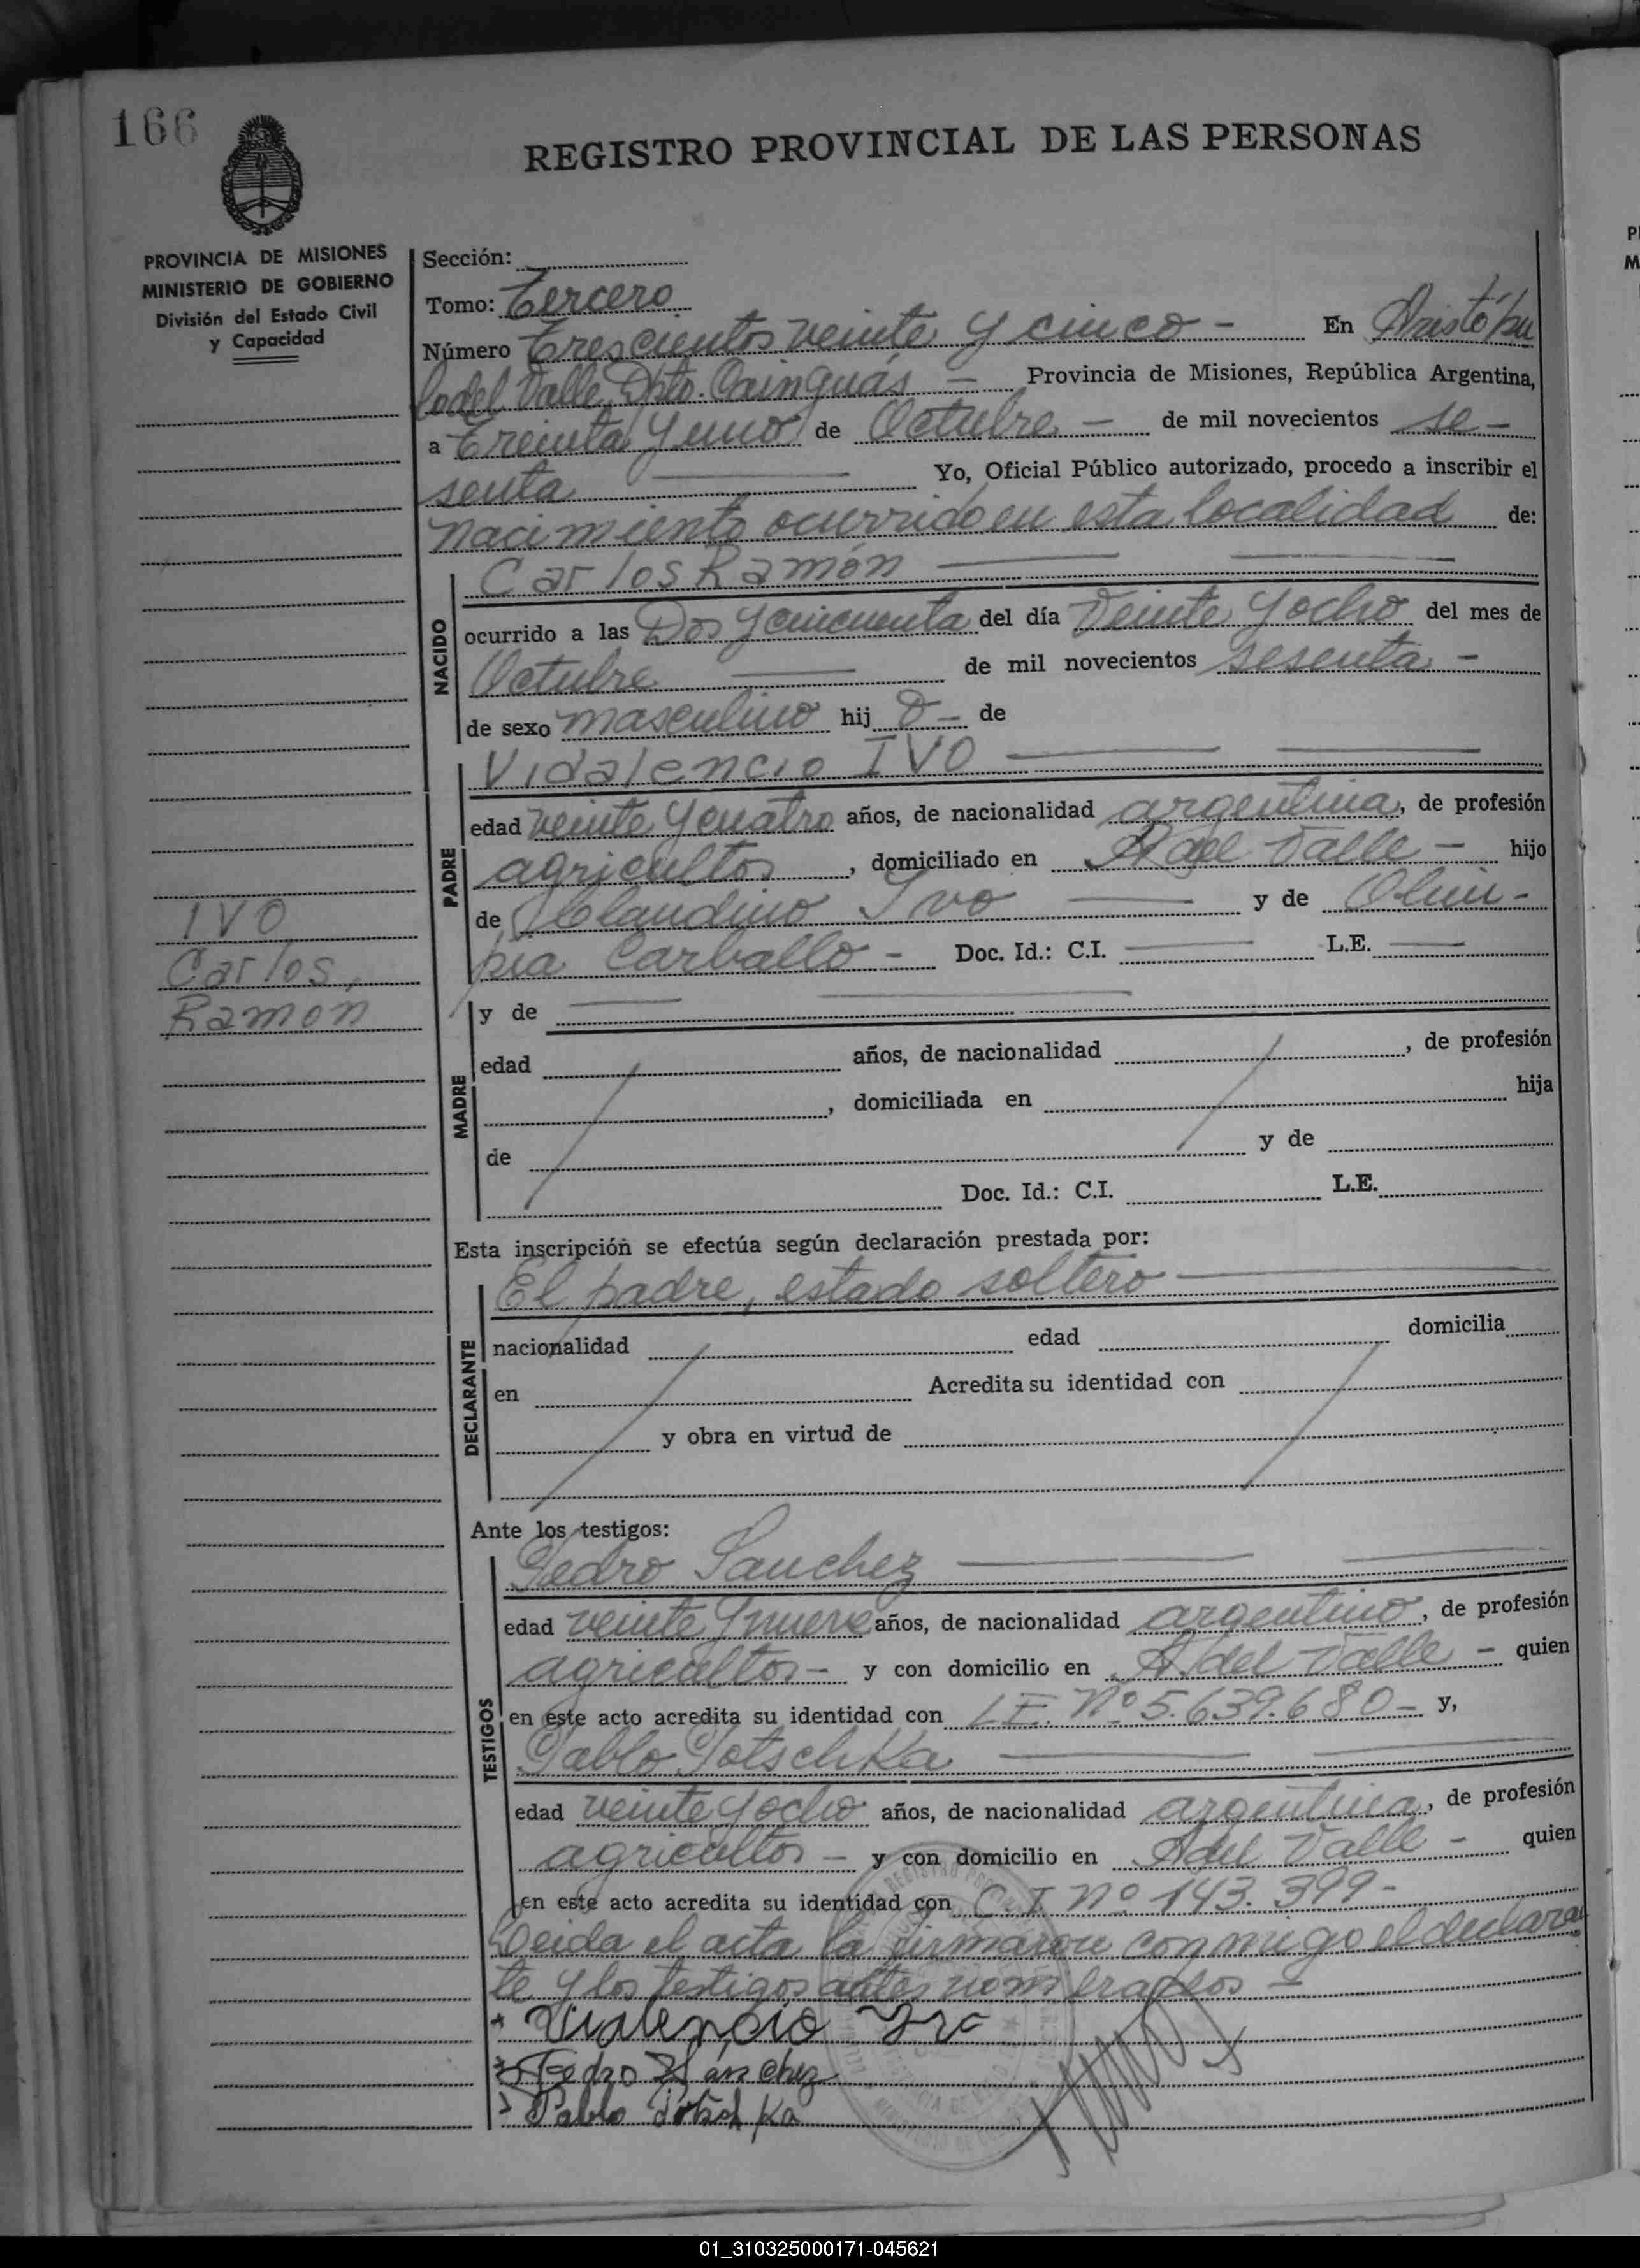 166
REGISTRO PROVINCIAL DE LAS PERSONAS
PROVINCIA DE MISIONES
MINISTERIO DE GOBIERNO
División del Estado Civil
y Capacidad
Sección:
Tomo: Tercero
Número Trescientos veinte y cinco - En Aristóbu
lo del Valle, Dpto. Cainguás - Provincia de Misiones, República Argentina,
a Treinta y uno de Octubre - de mil novecientos se-
senta Yo, Oficial Público autorizado, procedo a inscribir el
nacimiento ocurrido en esta localidad de:
Carlos Ramón
NACIDO
ocurrido a las Dos y cincuenta del día Veinte y ocho del mes de
Octubre de mil novecientos sesenta -
de sexo masculino hij o - de
Vidalencio IVO
PADRE
edad veinte y cuatro años, de nacionalidad argentina, de profesión
agricultor, domiciliado en A del Valle - hijo
de Claudino Ivo y de Olim-
pia Carballo - Doc. Id.: C.I. L.E.
IVO
Carlos,
Ramon
MADRE
y de
edad años, de nacionalidad , de profesión
, domiciliada en hija
de y de
Doc. Id.: C.I. L.E.
Esta inscripción se efectúa según declaración prestada por:
El padre, estado soltero
DECLARANTE
nacionalidad edad domicilia
en Acredita su identidad con
y obra en virtud de
Ante los testigos:
Pedro Sanchez
TESTIGOS
edad veinte y nueve años, de nacionalidad argentino, de profesión
agricultor - y con domicilio en A. del Valle - quien
en este acto acredita su identidad con L.E. Nº 5.639.680 - y,
Pablo Potschka
edad veinte y ocho años, de nacionalidad argentina, de profesión
agricultor - y con domicilio en A del Valle - quien
en este acto acredita su identidad con C.I. Nº 143.399 -
Leida el acta la firmaron conmigo el declaran
te y los testigos antes nombrados -
Vidalencio Ivo
Pedro Sánchez
Pablo Potschka
01_310325000171-045621